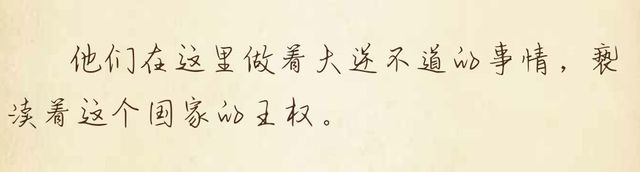 他们在这里做着大逆不道的事情，亵
渎着这个国家的王权。